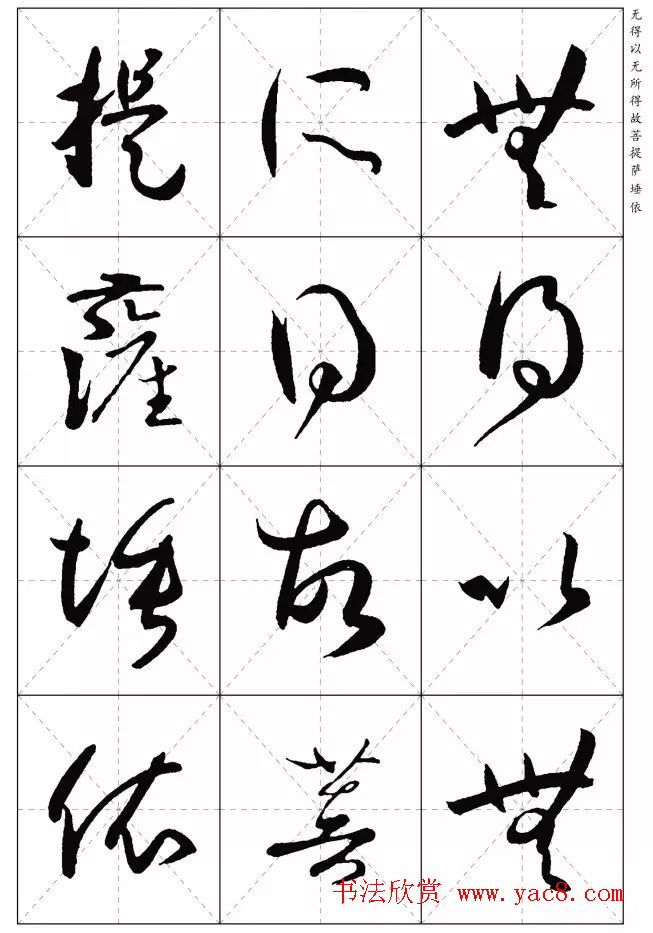 无得以无所得故菩提萨埵依
無得以無
所得故菩
提薩埵依
书法欣赏 www.yac8.com